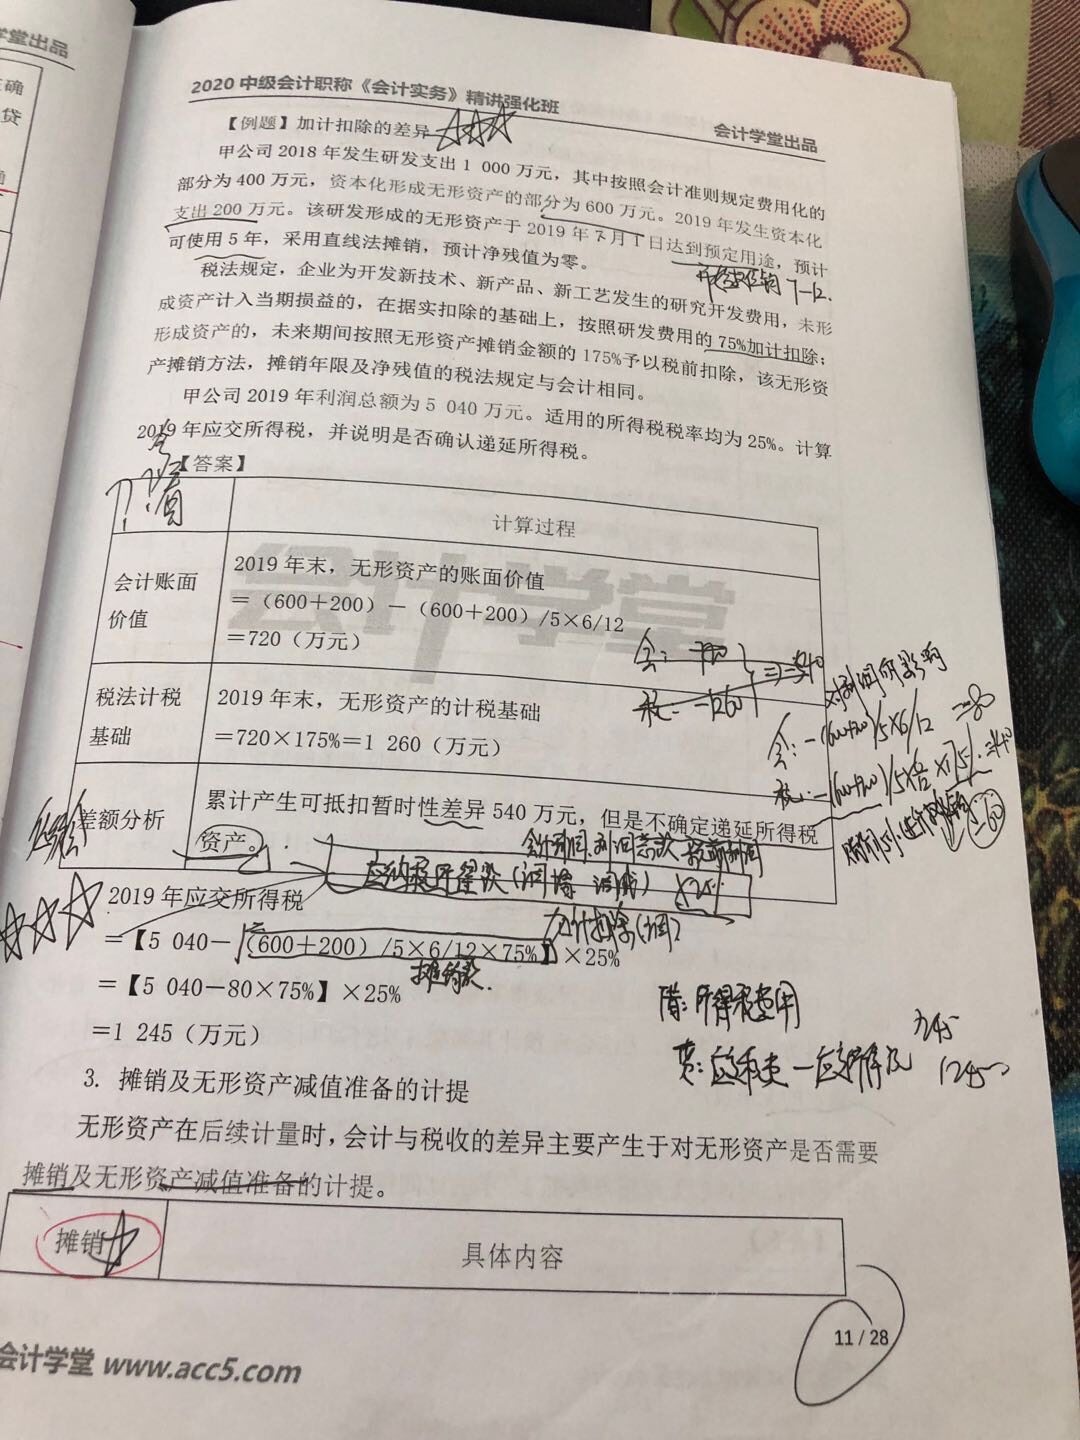 学堂出品
确
贷
2020 中级会计职称《会计实务》精讲强化班
会计学堂出品
【例题】加计扣除的差异
甲公司 2018 年发生研发支出 1 000 万元，其中按照会计准则规定费用化的
部分为 400 万元，资本化形成无形资产的部分为 600 万元。2019 年发生资本化
支出 200 万元。该研发形成的无形资产于 2019 年 7 月 1 日达到预定用途，预计
可使用 5 年，采用直线法摊销，预计净残值为零。
7-12.
税法规定，企业为开发新技术、新产品、新工艺发生的研究开发费用，未形
成资产计入当期损益的，在据实扣除的基础上，按照研发费用的 75%加计扣除；
形成资产的，未来期间按照无形资产摊销金额的 175%予以税前扣除，该无形资
产摊销方法，摊销年限及净残值的税法规定与会计相同。
甲公司 2019 年利润总额为 5 040 万元。适用的所得税税率均为 25%。计算
2019 年应交所得税，并说明是否确认递延所得税。
【答案】
计算过程
会计账面
价值
2019 年末，无形资产的账面价值
＝（600＋200）－（600＋200）/5×6/12
＝720（万元）
税法计税
基础
2019 年末，无形资产的计税基础
＝720×175%＝1 260（万元）
会：720
税：1260
540
对利润的影响
会：-(600+200)/5×6/12 =-80
税：-(600+200)/5×6/12×175% =-140
-60
差额分析
累计产生可抵扣暂时性差异 540 万元，但是不确定递延所得税
资产。
会计利润、利润总额、税前利润
应纳税所得额（调增、调减）×25%
2019 年应交所得税
加计扣除（调）
＝【5 040－（600＋200）/5×6/12×75%】×25%
摊销额
＝【5 040－80×75%】×25%
＝1 245（万元）
借：所得税费用
1245
贷：应交税费—应交所得税
1245
3. 摊销及无形资产减值准备的计提
无形资产在后续计量时，会计与税收的差异主要产生于对无形资产是否需要
摊销及无形资产减值准备的计提。
摊销
具体内容
11 / 28
会计学堂 www.acc5.com